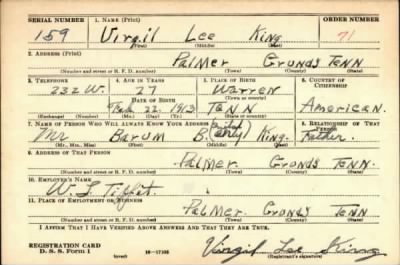 SERIAL NUMBER 1. NAME (Print) ORDER NUMBER
159 Virgil Lee King 71
(First) (Middle) (Last)
2. ADDRESS (Print)
Palmer Grundy Tenn
(Number and street or R. F. D. number) (Town) (County) (State)
3. TELEPHONE 4. AGE IN YEARS 5. PLACE OF BIRTH 6. COUNTRY OF CITIZENSHIP
232 W. 27 Warren
DATE OF BIRTH (Town or county)
22, 1913 Tenn American
(Exchange) (Number) (Mo.) (Day) (Yr.) (State or country)
7. NAME OF PERSON WHO WILL ALWAYS KNOW YOUR ADDRESS 8. RELATIONSHIP OF THAT PERSON
Mr Barum B. King. Father.
(Mr., Mrs., Miss) (First) (Middle) (Last)
9. ADDRESS OF THAT PERSON
Palmer Grundy Tenn.
(Number and street or R. F. D. number) (Town) (County) (State)
10. EMPLOYER'S NAME
W. L.
11. PLACE OF EMPLOYMENT OR BUSINESS
Palmer Grundy Tenn
(Number and street or R. F. D. number) (Town) (County) (State)
I AFFIRM THAT I HAVE VERIFIED ABOVE ANSWERS AND THAT THEY ARE TRUE.
REGISTRATION CARD
D. S. S. Form 1 (over) 16—17105 Virgil Lee King
(Registrant's signature)